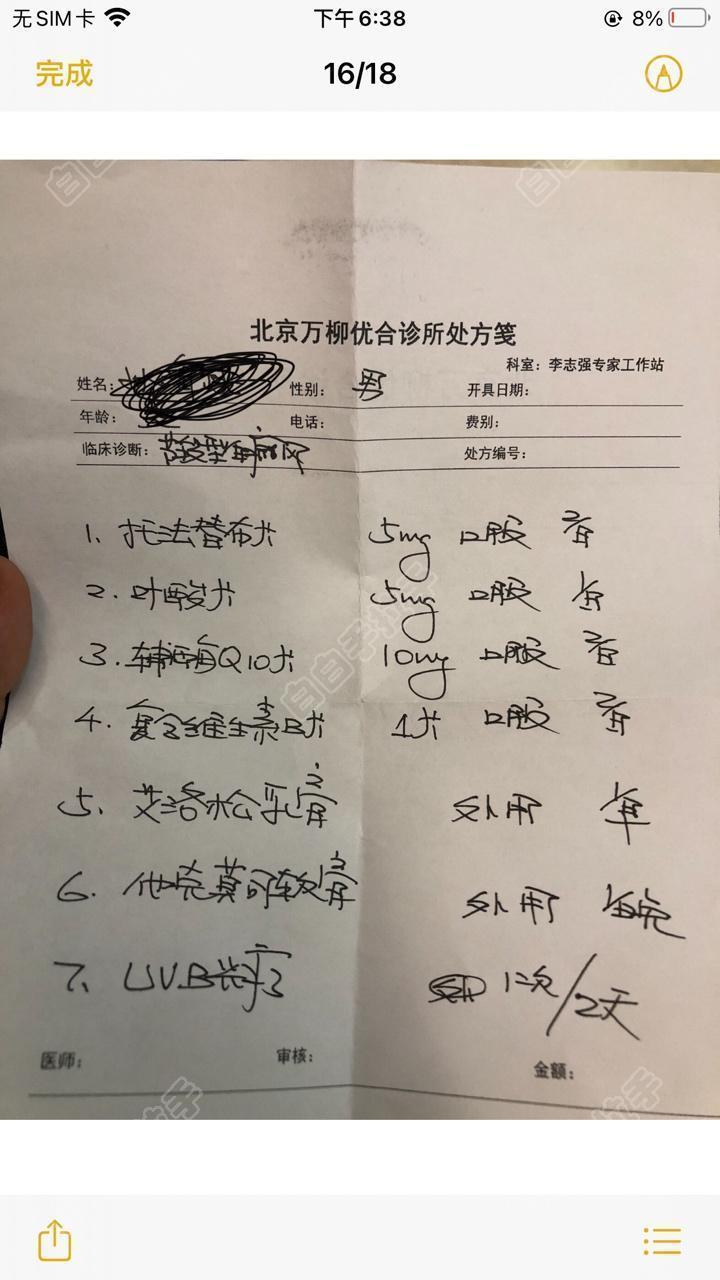 无SIM卡
下午6:38
8%
完成
16/18
北京万柳优合诊所处方笺
科室：李志强专家工作站
姓名：
性别：男
开具日期：
年龄：
电话：
费别：
临床诊断：
处方编号：
1、托法替布片 5mg 口服 2/日
2.叶酸片 5mg 口服 1/日
3.辅酶Q10片 10mg 口服 2/日
4.复合维生素B片 1片 口服 2/日
5、艾洛松乳膏 外用 1/早
6.他克莫司软膏 外用 1/晚
7、UVB光疗 1次/2天
医师：
审核：
金额：
白白手